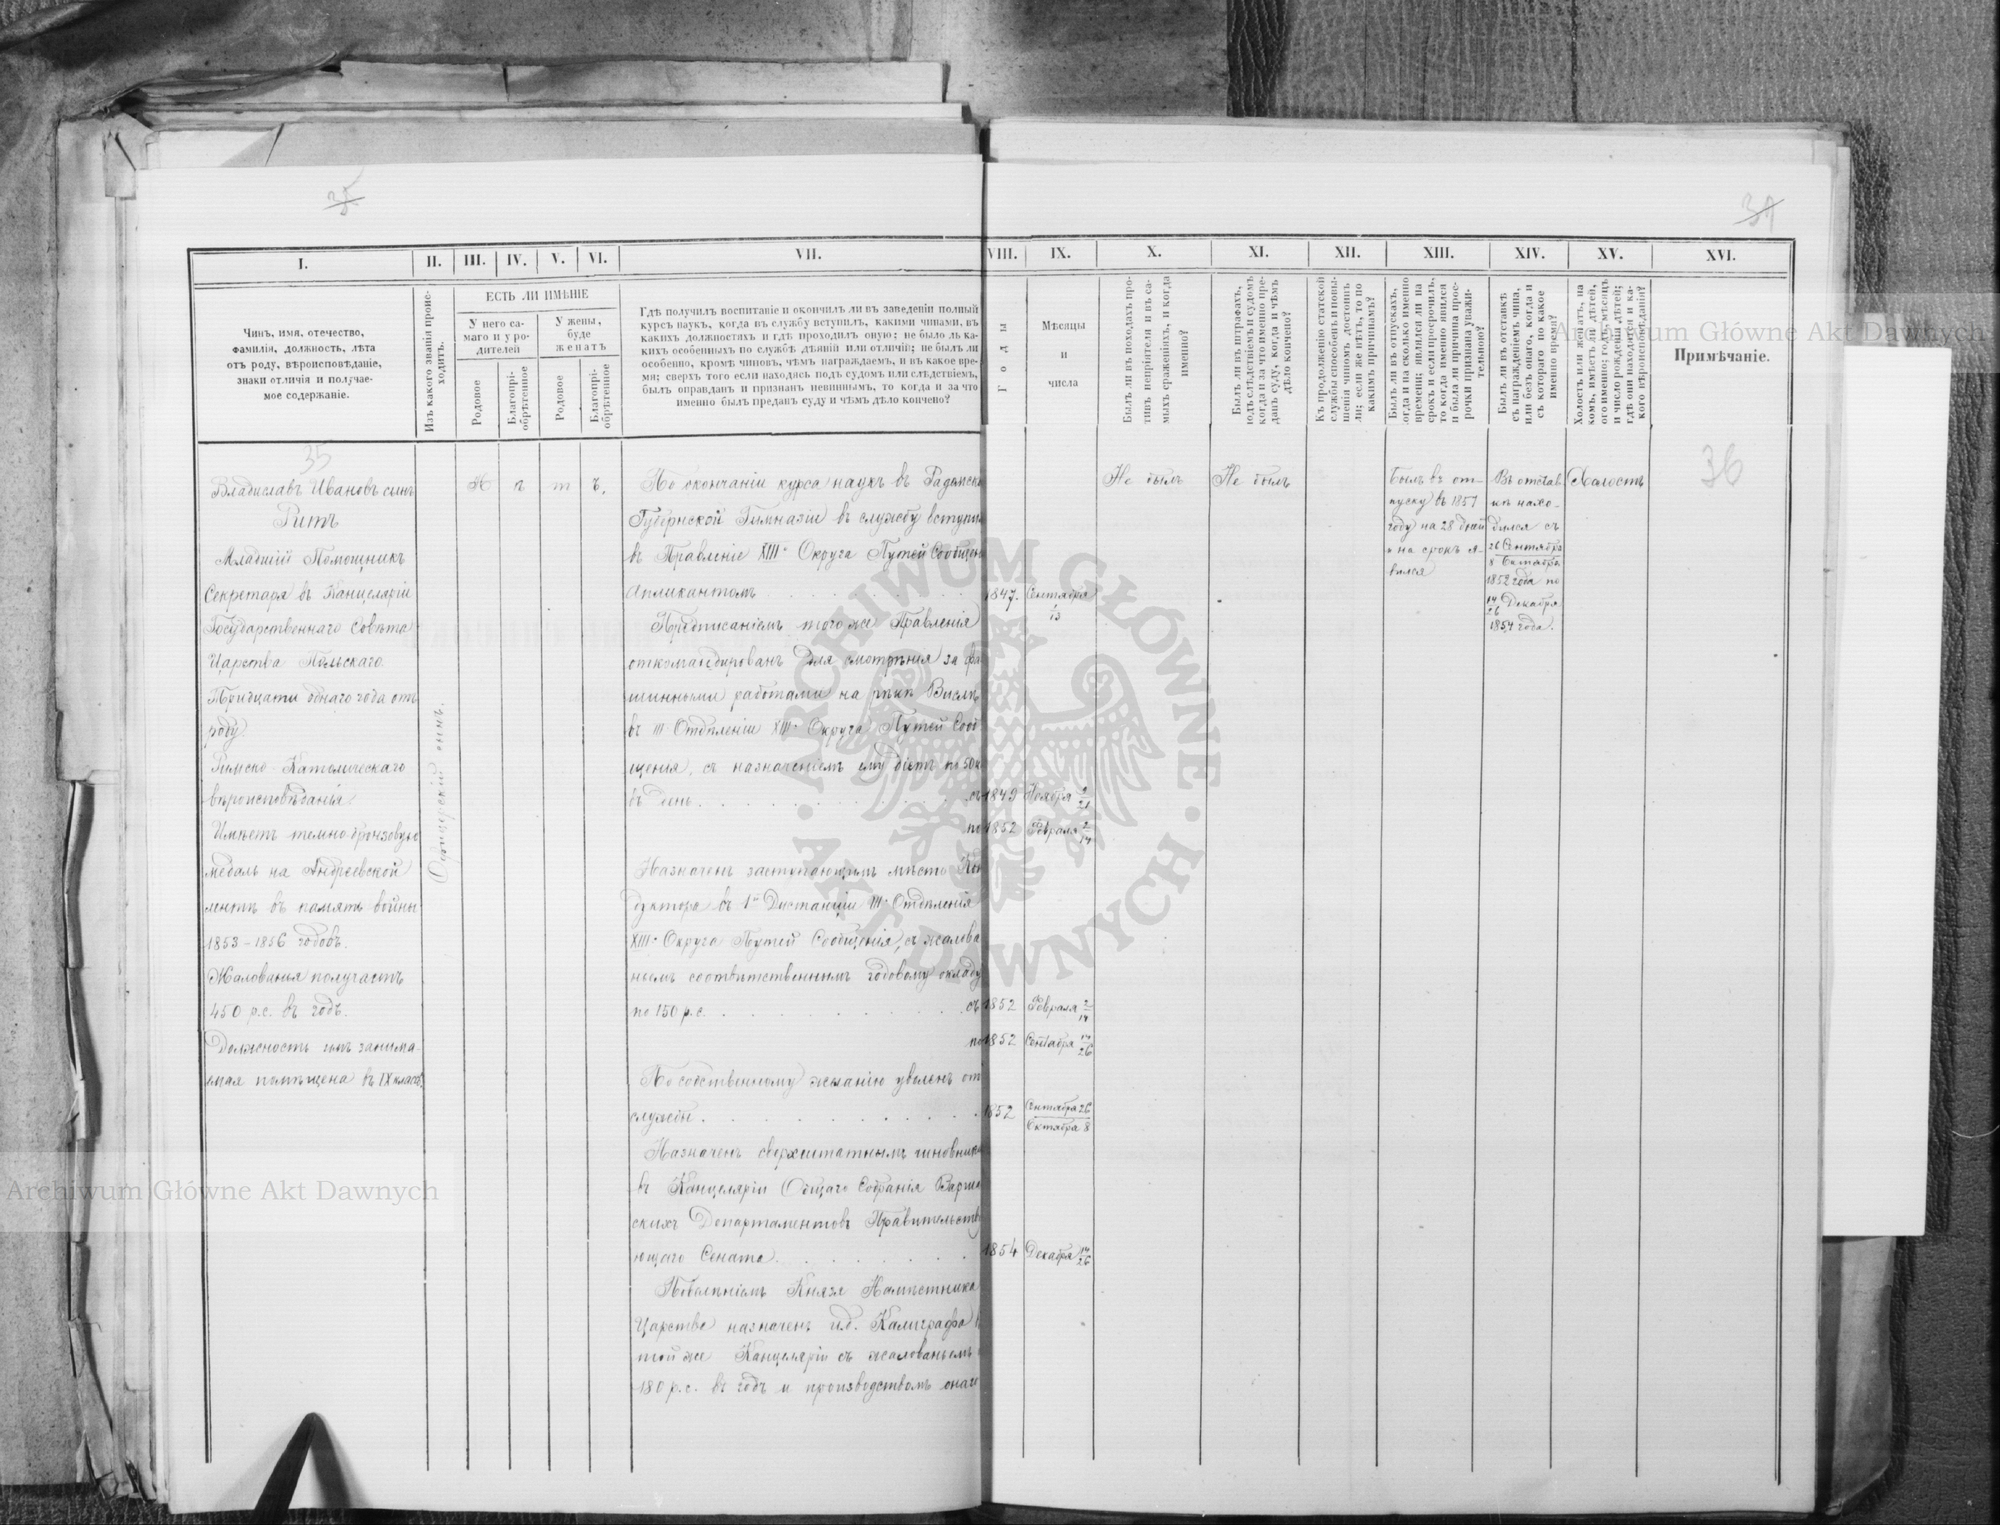 35
37
I.
II.
III.
IV.
V.
VI.
VII.
VIII.
IX.
X.
XI.
XII.
XIII.
XIV.
XV.
XVI.
Чинъ, имя, отечество,
фамилія, должность, лѣта
отъ роду, вѣроисповѣданіе,
знаки отличія и получае-
мое содержаніе.
Изъ какого званія проис-
ходитъ.
ЕСТЬ ЛИ ИМѢНІЕ
У него са-
маго и у ро-
дителей
У жены,
буде
женатъ
Родовое
Благопрі-
обрѣтенное
Родовое
Благопрі-
обрѣтенное
Гдѣ получилъ воспитаніе и окончилъ ли въ заведеніи полный
курсъ наукъ, когда въ службу вступилъ, какими чинами, въ
какихъ должностяхъ и гдѣ проходилъ оную; не было ль ка-
кихъ особенныхъ по службѣ дѣяній или отличій; не былъ ли
особенно, кромѣ чиновъ, чѣмъ награждаемъ, и въ какое вре-
мя; сверхъ того если находясь подъ судомъ или слѣдствіемъ,
былъ оправданъ и признанъ невиннымъ, то когда и за что
именно былъ преданъ суду и чѣмъ дѣло кончено?
Годы
Мѣсяцы
и
числа
Былъ ли въ походахъ про-
тивъ непріятеля и въ са-
мыхъ сраженіяхъ, и когда
именно?
Былъ ли въ штрафахъ,
подъ слѣдствіемъ и судомъ
когда и за что именно пре-
данъ суду, когда и чѣмъ
дѣло кончено?
Къ продолженію статской
службы способенъ и повы-
шенія чиномъ достоинъ
ли; если же нѣтъ, то по
какимъ причинамъ?
Былъ ли въ отпускахъ,
когда и на сколько именно
времени; явился ли на
срокъ и если просрочилъ,
то когда именно явился
и была ли причина прос-
рочки признана уважи-
тельною?
Былъ ли въ отставкѣ
съ награжденіемъ чина,
или безъ онаго, когда и
съ котораго по какое
именно время?
Холостъ или женатъ, на
комъ, имѣетъ ли дѣтей,
кого именно; годъ, мѣсяцъ
и число рожденія дѣтей;
гдѣ они находятся и ка-
кого вѣроисповѣданія?
Примѣчаніе.
35
Владиславъ Ивановъ сынъ
Ритъ
Младшій Помощникъ
Секретаря въ Канцеляріи
Государственнаго Совѣта
Царства Польскаго.
Тридцати однаго года отъ
роду
Римско-Католическаго
вѣроисповѣданія
Имѣетъ темно бронзовую
медаль на Андреевской
лентѣ въ память войны
1853-1856 годовъ.
Жалованья получаетъ
450 р.с. въ годъ.
Должность имъ занима-
емая помѣщена въ IX классѣ.
Офицерскій сынъ.
Н ѣ т ъ.
По окончаніи курса наукъ въ Радомск
Губернской Гимназіи въ службу вступил
въ Правленіе XIII. Округа Путей Сообщен
Апликантомъ
1847.
Сентября
1/13
Предписаніемъ того же Правленія
откомандированъ для смотрѣнія за фа
шинными работами на рѣкѣ Вислѣ
въ III Отдѣленіи XIII. Округа Путей Сооб
щенія, съ назначеніемъ ему діетъ по 50 к
въ день.
съ 1849
Ноября 9/21
по 1852
Февраля 2/14
Назначенъ заступающимъ мѣсто Кон
дуктора въ 1й Дистанціи III. Отдѣленія
XIII. Округа Путей Сообщенія, съ жалова
ньемъ соотвѣтственнымъ годовому окладу
по 150 р.с.
съ 1852
Февраля 2/14
по 1852
Сентября 14/26
По собственному желанію уволенъ отъ
службы.
1852
Сентября 26
Октября 8
Назначенъ сверхштатнымъ чиновнико
въ Канцеляріи Общаго Собранія Варша
скихъ Департаментовъ Правительств
ющаго Сената.
1854
Декабря 14/26
Повелѣніемъ Князя Намѣстника
Царства назначенъ и.д. Калиграфа
той же Канцеляріи съ жалованьемъ
180 р.с. въ годъ и производствомъ онаго
Не былъ
Не былъ
Былъ въ от-
пуску въ 1857
году на 28 дней
и на срокъ я-
вился
Въ отстав
кѣ нахо-
дился съ
26 Сентября
8 Октября
1852 года по
14/26 Декабря
1854 года.
Холостъ
36
ARCHIWUM GŁÓWNE AKT DAWNYCH
Archiwum Główne Akt Dawnych
Archiwum Główne Akt Dawnych